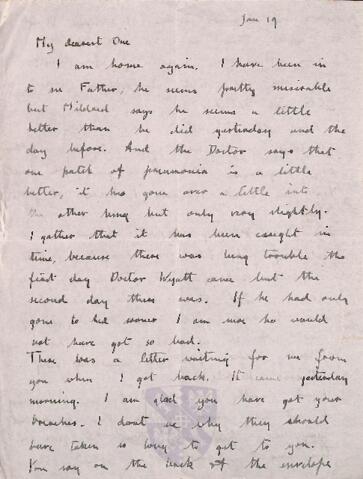 Jan 19
My dearest One
I am home again. I have been in
to see Father, he seems pretty miserable
but Mildred says he seems a little
better than he did yesterday and the
day before. And the Doctor says that
one patch of pneumonia is a little
better, it has gone over a little into
the other lung but only very slightly.
I gather that it has been caught in
time, because there was lung trouble the
first day Doctor Wyatt came but the
second day there was. If he had only
gone to bed sooner I am sure he would
not have got so bad.
There was a letter waiting for me from
you when I got back. It came yesterday
morning. I am glad you have got your
breeches. I dont see why they should
have taken so long to get to you.
You say on the back of the envelope